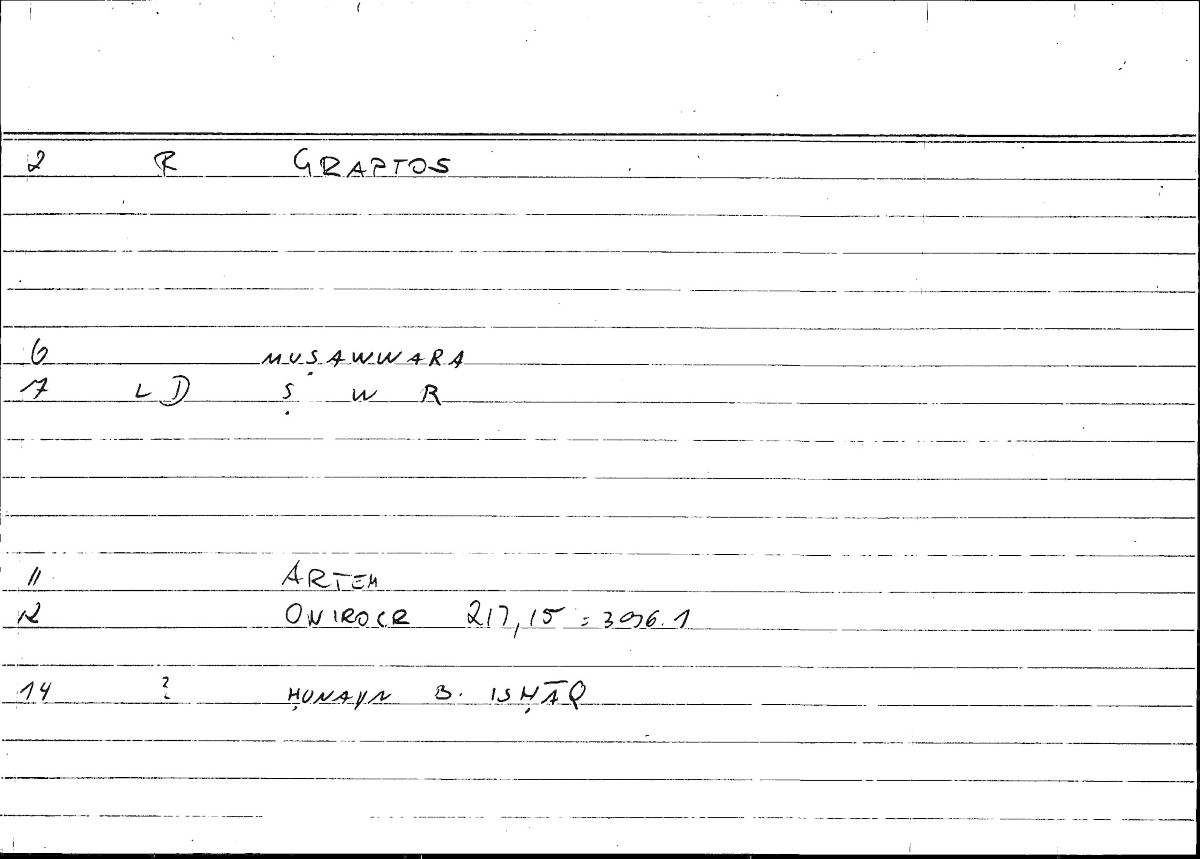 2 R GRAPTOS
6 MUṢAWWARA
7 LD Ṣ W R
11 ARTEM
12 ONIROCR 217,15 = 3096.1
14 ? ḤUNAYN B. ISḤĀQ